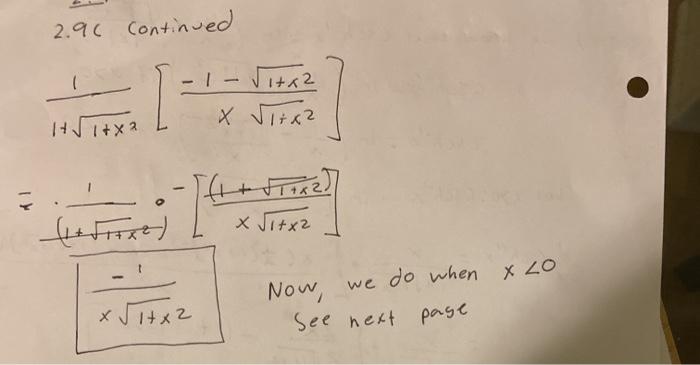 2.9c Continued
1 / (1+√(1+x²)) [ (-1 - √(1+x²)) / (x √(1+x²)) ]
= · 1 / (1+√(1+x²)) · - [ (1 + √(1+x²)) / (x √(1+x²)) ]
-1 / (x √(1+x²))
Now, we do when x<0
See next page